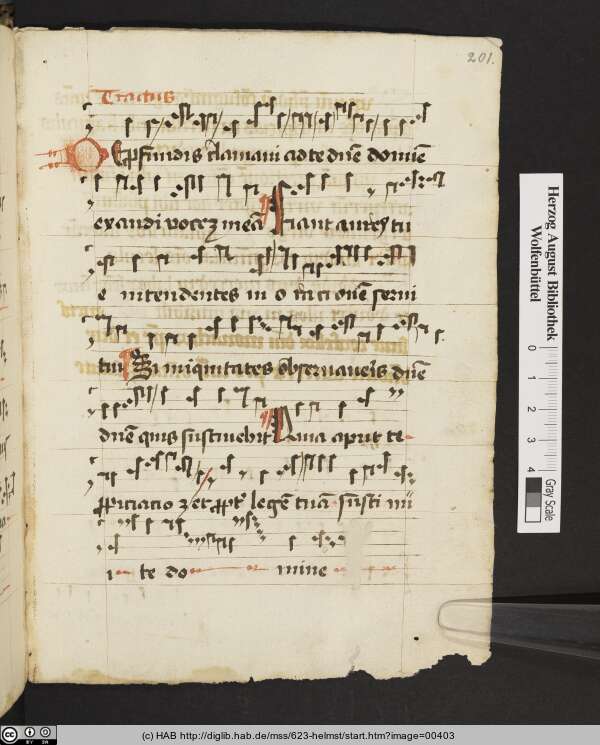 201.
Tractus
De pfundis clamavi ad te dn̄e domīe
exaudi vocez meā Fiant aures tu
e intendentes in o racionē servi
tui Si iniquitates observaveris dn̄e
dn̄e quis sustinebit Quia aput te
ppiciacio z et ppt̄ legē tuā susti nu
i te do mine
Herzog August Bibliothek
Wolfenbüttel
0 1 2 3 4
Gray Scale
cc BY SA
(c) HAB http://diglib.hab.de/mss/623-helmst/start.htm?image=00403